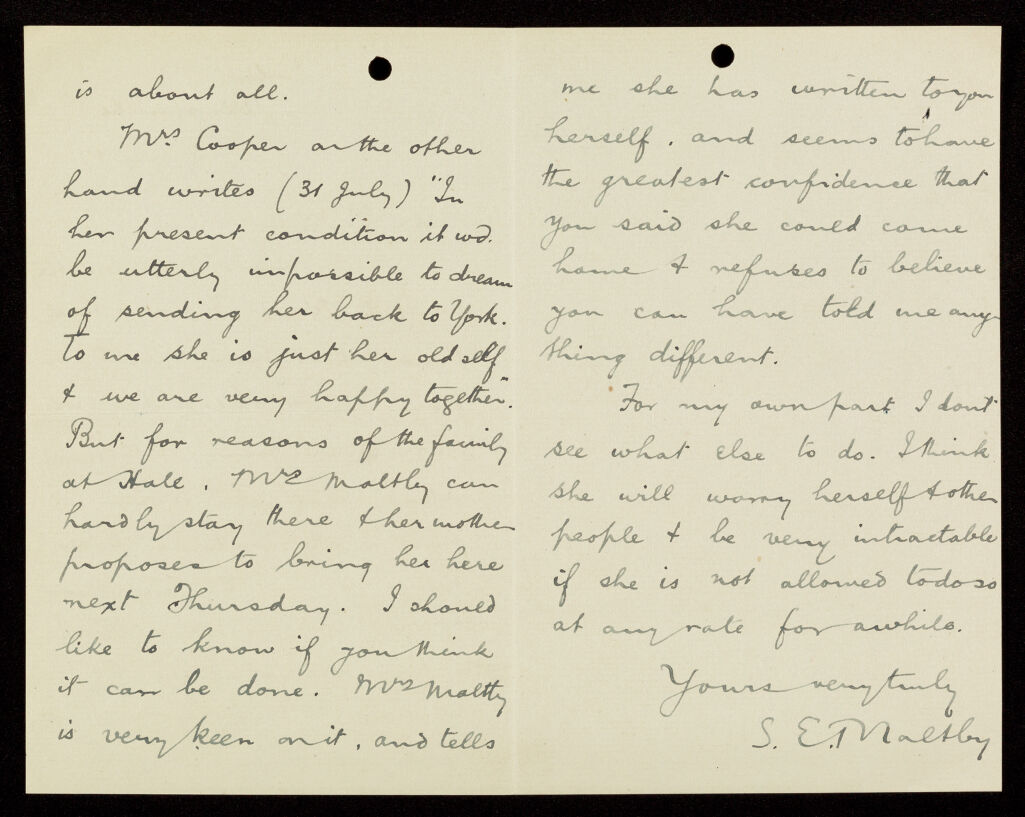 is about all.
Mrs. Cooper on the other
hand writes (31 July) "In
her present condition it wd.
be utterly impossible to dream
of sending her back to York.
To me she is just her old self
& we are very happy together".
But for reasons of the family
at Hale, Mrs Maltby can
hardly stay there & her mother
proposes to bring her here
next Thursday. I should
like to know if you think
it can be done. Mrs Maltby
is very keen on it, and tells
me she has written to you
herself, and seems to have
the greatest confidence that
you said she could come
home & refuses to believe
you can have told me any-
thing different.
For my own part I don't
see what else to do. I think
she will worry herself & other
people & be very intractable
if she is not allowed to do so
at any rate for awhile.
Yours very truly
S. E. Maltby